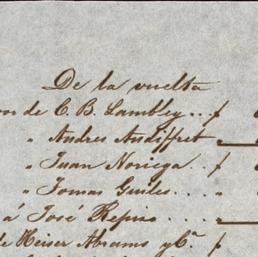 De la vuelta
or de C. B. Lambley .. f
" Andres Audiffret "
" Juan Noriega .. f
" Tomas Guiles .... "
á José Repiso .... "
de Heiser Abrams y Cª. f